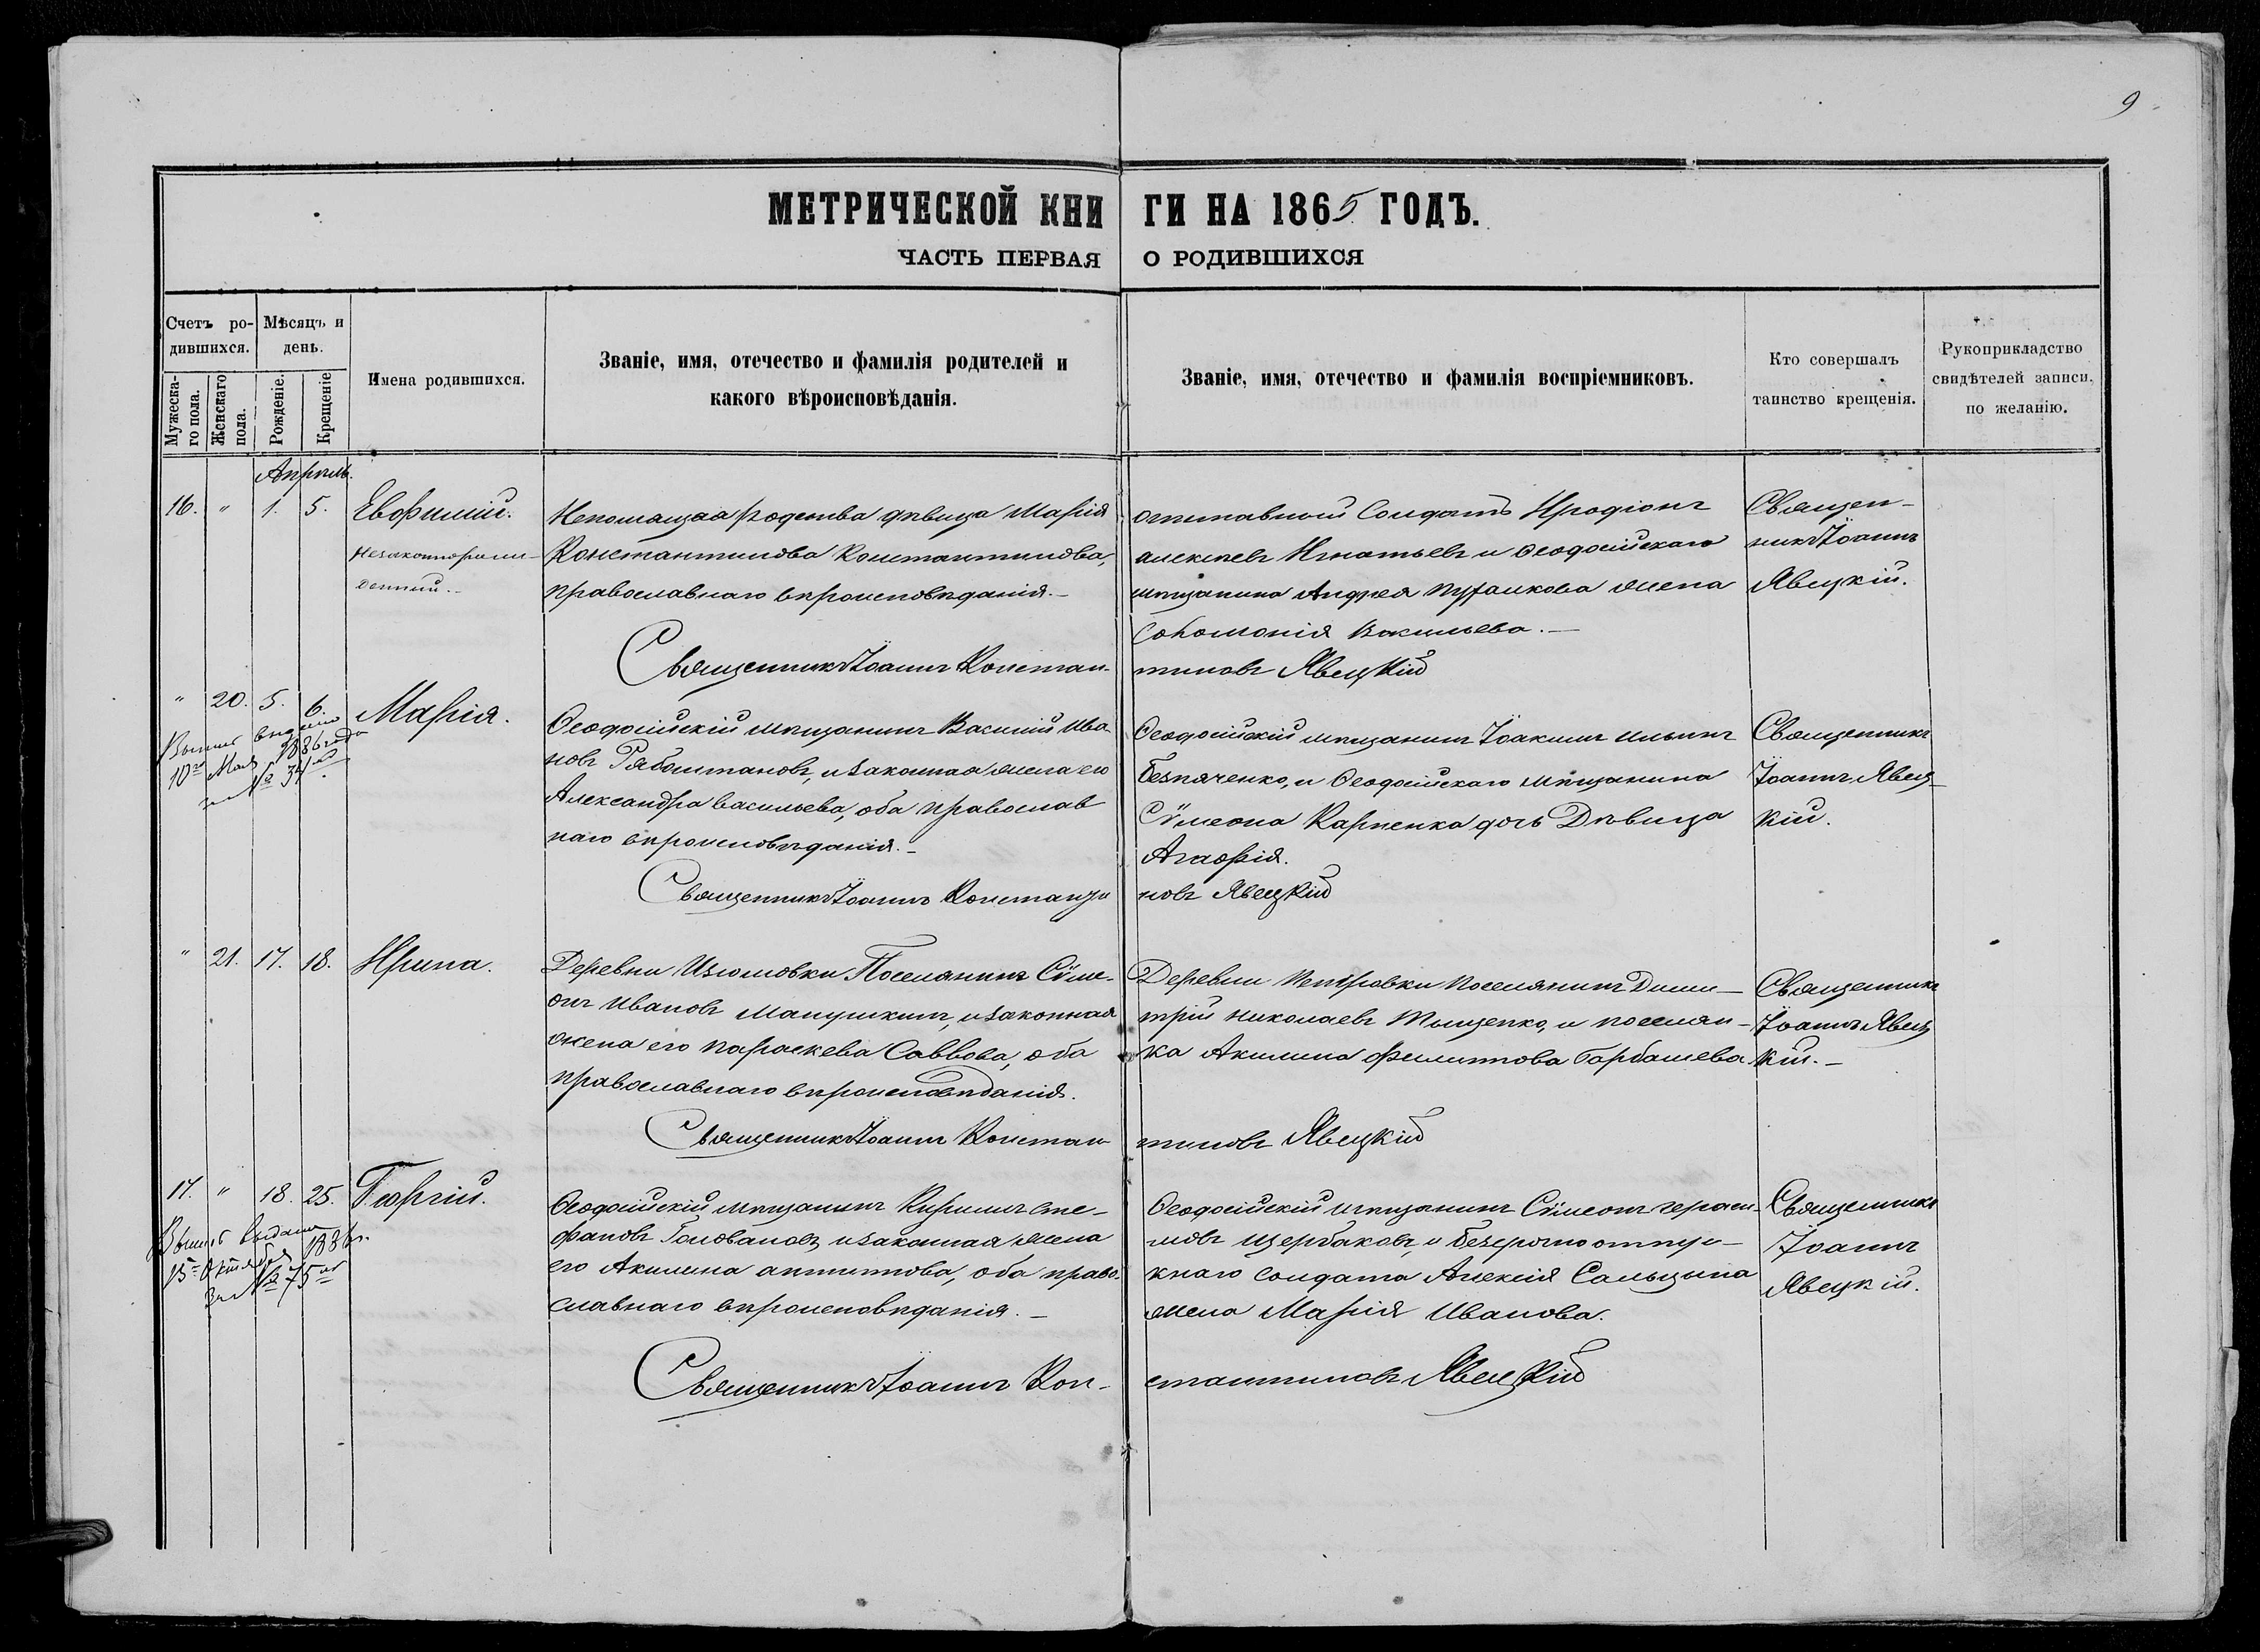 9
МЕТРИЧЕСКОЙ КНИ ГИ НА 1865 ГОДЪ.
ЧАСТЬ ПЕРВАЯ О РОДИВШИХСЯ
Счетъ ро-
дившихся.
Мѣсяцъ и
день.
Мужеска-
го пола.
Женскаго
пола.
Рожденіе.
Крещеніе
Имена родившихся.
Званіе, имя, отечество и фамилія родителей и
какого вѣроисповѣданія.
Званіе, имя, отечество и фамилія воспріемниковъ.
Кто совершалъ
таинство крещенія.
Рукоприкладство
свидѣтелей записи,
по желанію.
Апрѣль.
16. " 1. 5.
Евфимій.
Незаконнорож-
денный.
Непомнящая родства дѣвица Марія
Константинова Константинова,
православнаго вѣроисповѣданія.
отставной Солдатъ Иродіонъ
алексѣевъ Игнатьевъ и Ѳеодосійскаго
мѣщанина Андрея жена
Соломонія Васильева.
Священ-
никъ Іоаннъ
Явецкій.
Священникъ Іоаннъ Констан-
тиновъ Явецкій
" 20. 5. 6.
Выпись видана
10го Мая 1886 года
за № 34мъ
Марія.
Ѳеодосійскій мѣщанинъ Василій Ива
новъ Рябоштановъ, и законная жена его
Александра васильева, оба православ
наго вѣроисповѣданія.
Ѳеодосійскій мѣщанинъ Іоакимъ ильинъ
безпяченко, и Ѳеодосійскаго мѣщанина
Сѵмеона Карпенка дочь Дѣвица
Агафія.
Священникъ
Іоаннъ Явец-
кій.
Священникъ Іоаннъ Константи
новъ Явецкій
" 21. 17. 18.
Ирина.
Деревни Изюмовки Поселянинъ Сѵме-
онъ Ивановъ Манушкинъ, и законная
жена его параскева Саввова, оба
православнаго вѣроисповѣданія.
Деревни Петровки поселянинъ Дими-
трій николаевъ Тыщенко, и поселян-
ка Акилина филиппова Горбашева.
Священникъ
Іоаннъ Явец
кій.
Священникъ Іоаннъ Констан
тиновъ Явецкій
17. " 18. 25.
Выпись выдана
13го Октября 1886г.
За № 75мъ
Георгій.
Ѳеодосійскій мѣщанинъ Кириллъ сте-
фановъ Головановъ, и законная жена
его Акилина антипова, оба право-
славнаго вѣроисповѣданія.
Ѳеодосійскій мѣщанинъ Сѵмеонъ гераси-
мовъ щербаковъ, и безсрочно отпус-
кнаго солдата Алексія Сальцына
жена Марія Иванова.
Священникъ
Іоаннъ
Явецкій.
Священникъ Іоаннъ Кон-
стантиновъ Явецкій